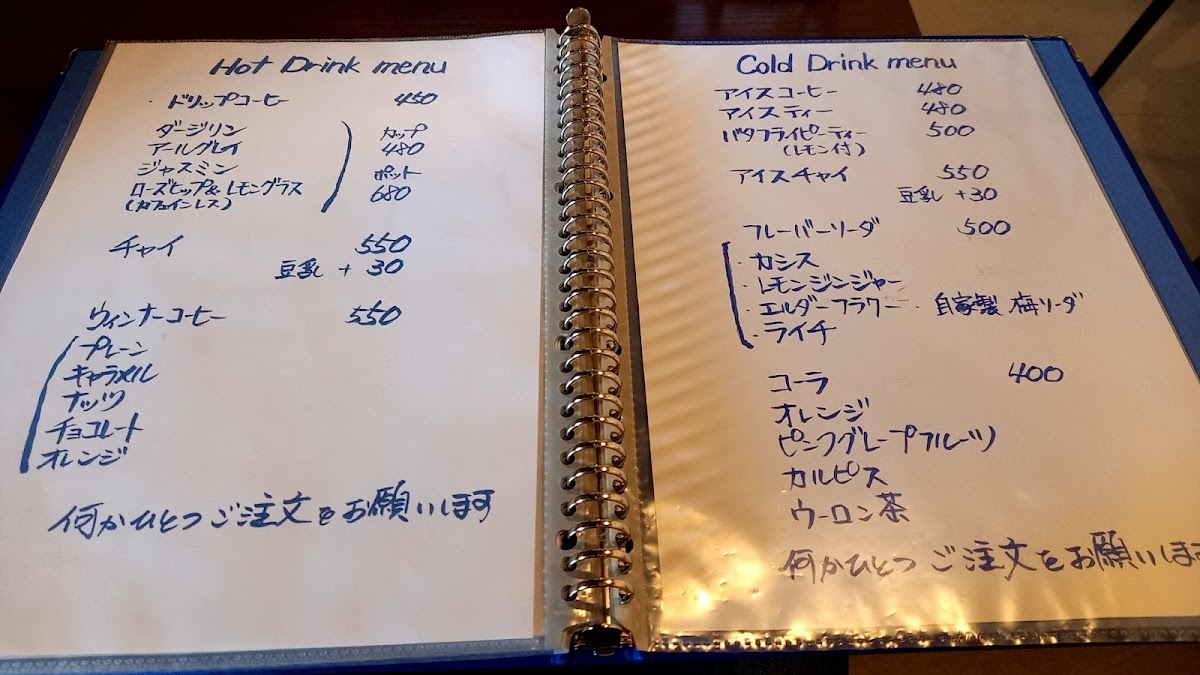 Hot Drink menu
・ドリップコーヒー 450
ダージリン カップ
アールグレイ 480
ジャスミン ポット
ローズヒップ&レモングラス 680
(カフェインレス)
チャイ 550
豆乳 + 30
ウィンナーコーヒー 550
プレーン
キャラメル
ナッツ
チョコレート
オレンジ
何かひとつご注文をお願いします
Cold Drink menu
アイスコーヒー 480
アイスティー 480
バタフライピーティー 500
(レモン付)
アイスチャイ 550
豆乳 +30
フレーバーソーダ 500
・カシス
・レモンジンジャー
・エルダーフラワー ・自家製 梅ソーダ
・ライチ
コーラ 400
オレンジ
ピンクグレープフルーツ
カルピス
ウーロン茶
何かひとつご注文をお願いします